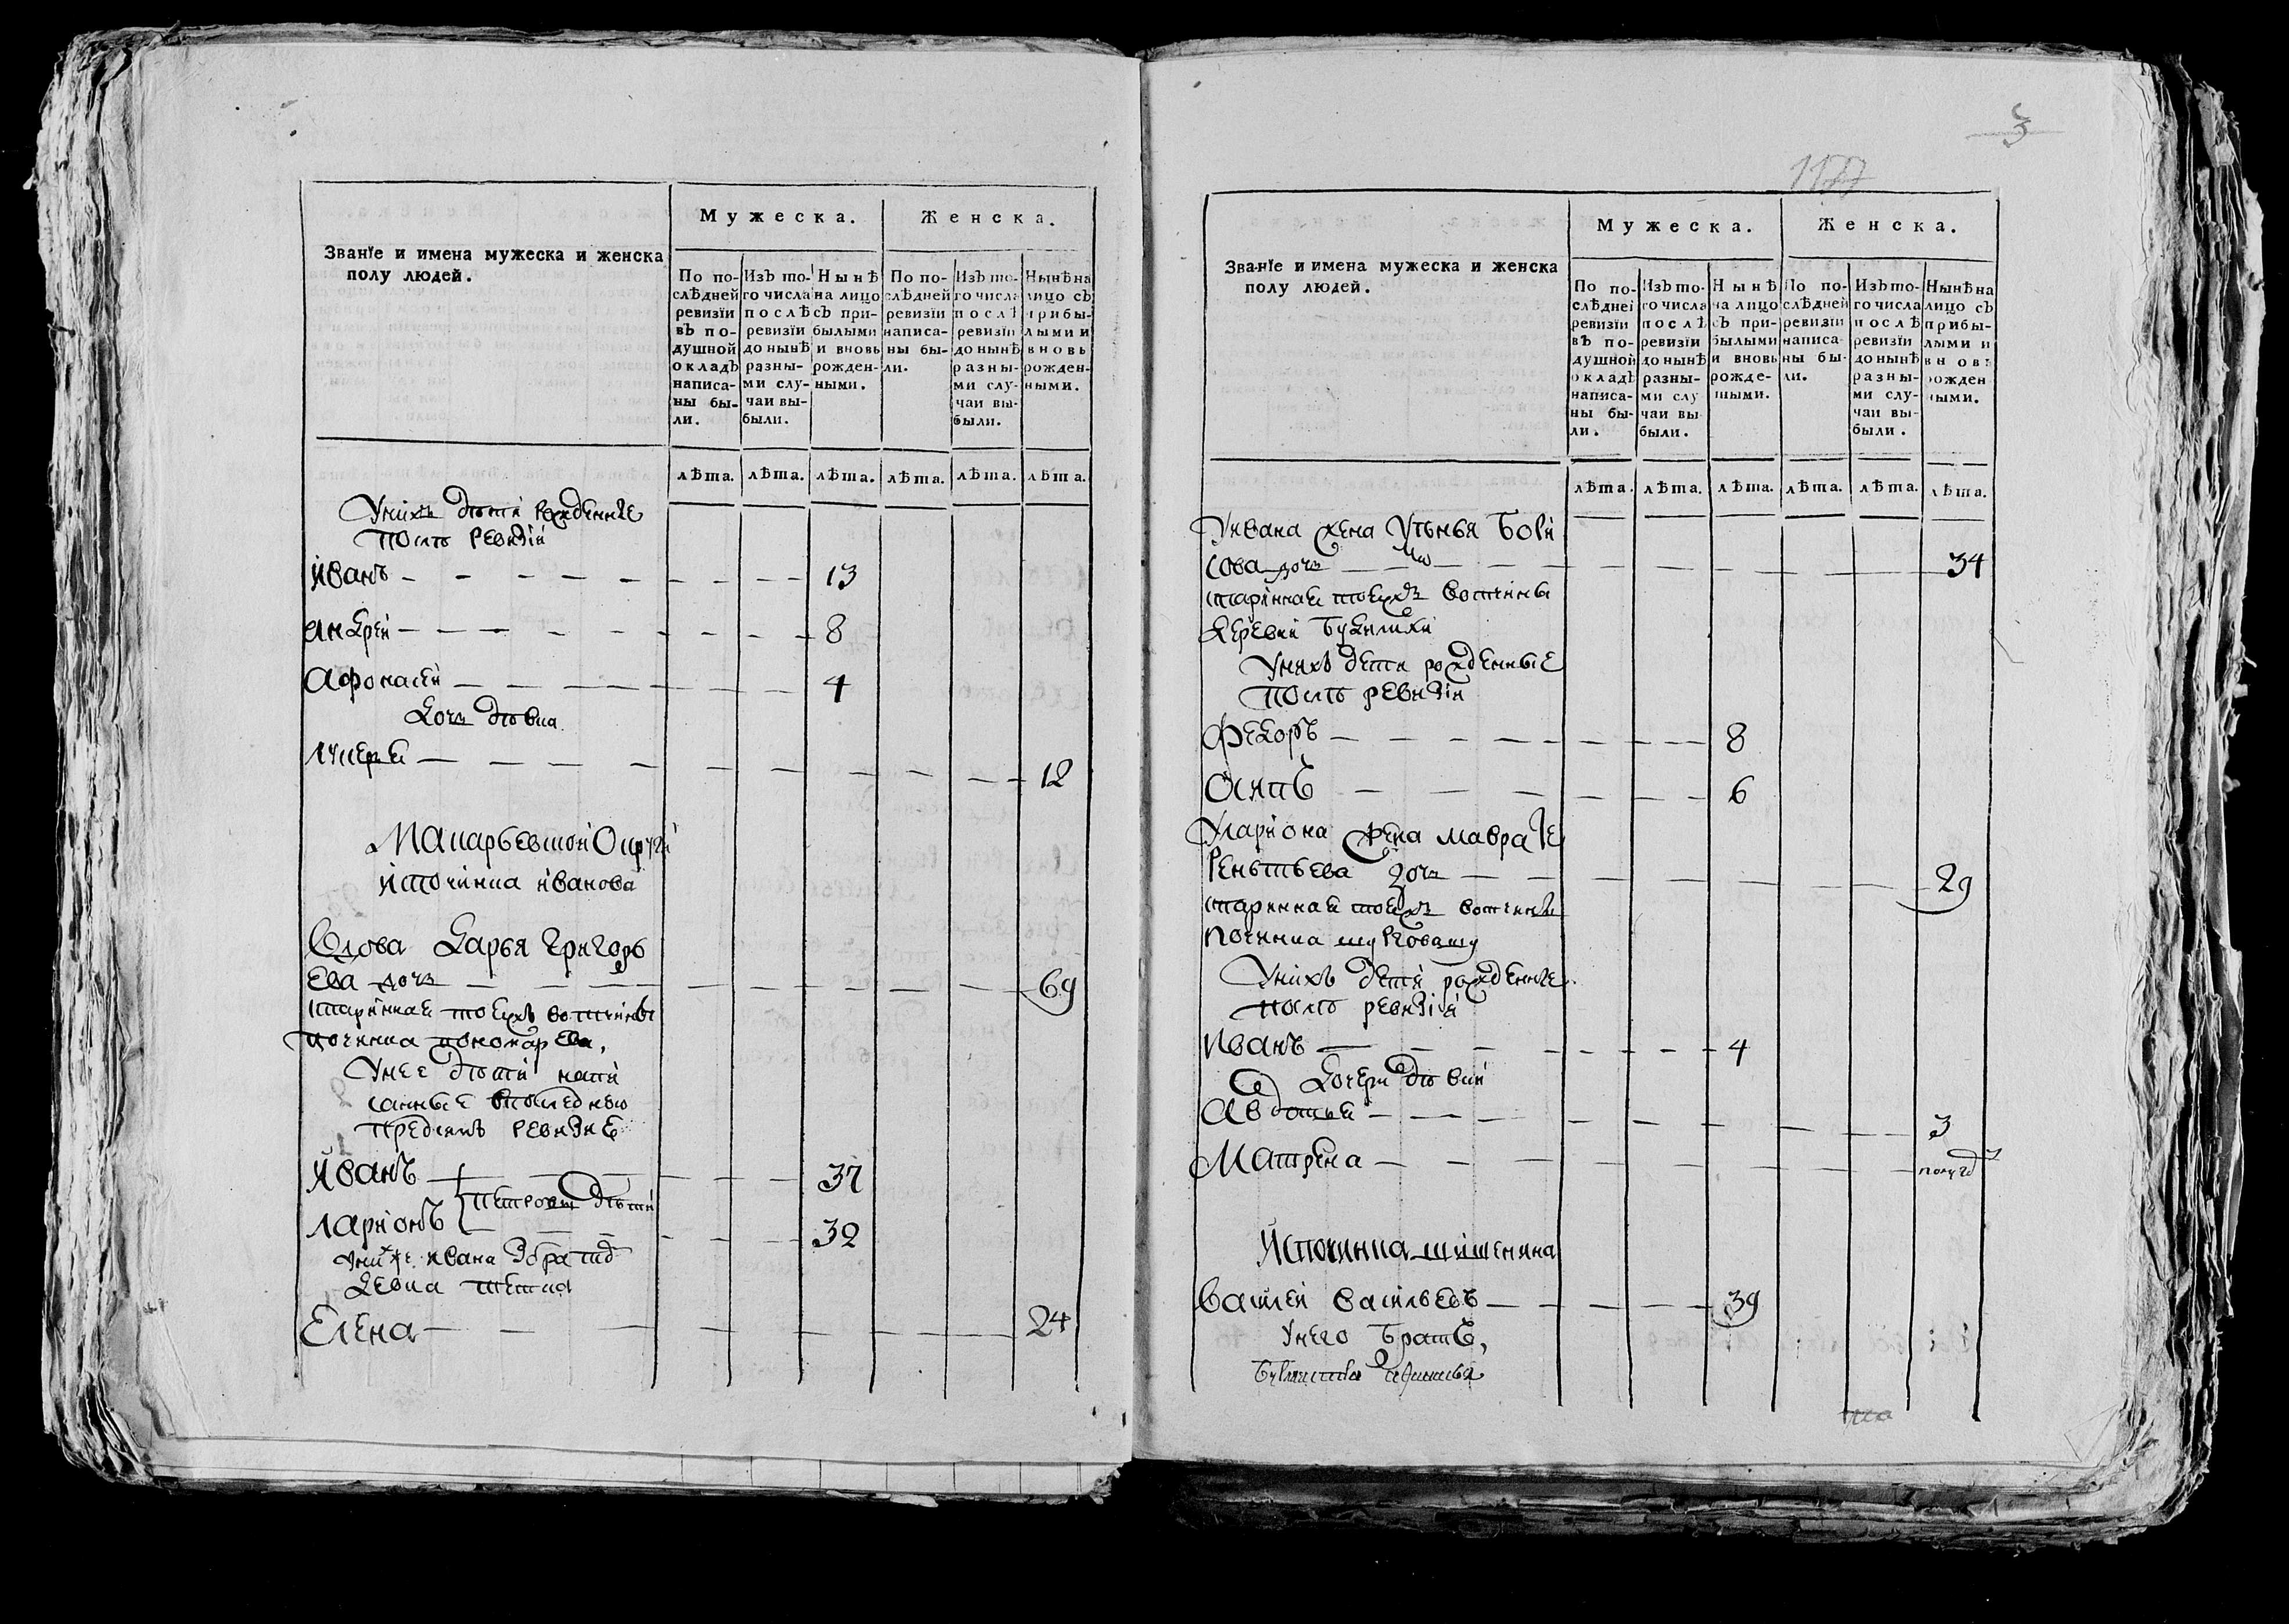 Званїе и имена мужеска и женска
полу людей.
Мужеска.
Женска.
По по-
слѣдней
ревизїи
въ по-
душной
окладъ
написа-
ны бы-
ли.
Изъ то-
го числа
послѣ
ревизїи
до нынѣ
разны-
ми слу-
чаи вы-
были.
Нынѣ
на лицо
съ при-
былыми
и вновь
рожден-
ными.
По по-
слѣдней
ревизїи
написа-
ны бы-
ли.
Изъ то-
го числа
послѣ
ревизїи
до нынѣ
разны-
ми слу-
чаи вы-
были.
Нынѣ на
лицо съ
прибы-
лыми и
вновь
рожден-
ными.
лѣта. лѣта. лѣта. лѣта. лѣта. лѣта.
Унихъ дѣти рожденные
послѣ ревизїи
Иванъ 13
Андрей 8
Афонасей 4
дочь дѣвка
Лукерья 12
Макарьевской округи
Ис починка Иванова
Вдова Дарья Григорь
ева дочь 69
старинная тоехъ вотчины
починка пономарева,
Унее дѣти напи
санные впоследнюю
предсимъ ревизию
Иванъ 37
петровы дѣти
Ларионъ 32
Унихже Ивана збратом
девка тетка
Елена 24
3
1177
Званїе и имена мужеска и женска
полу людей.
Мужеска.
Женска.
По по-
слѣдней
ревизїи
въ по-
душной
окладъ
написа-
ны бы-
ли.
Изъ то-
го числа
послѣ
ревизїи
до нынѣ
разны-
ми слу
чаи вы-
были.
Нынѣ
на лицо
съ при-
былыми
и вновь
рожде-
нными.
По по-
слѣдней
ревизїи
написа-
ны бы-
ли.
Изъ то-
го числа
послѣ
ревизїи
до нынѣ
разны-
ми слу-
чаи вы-
были.
Нынѣ на
лицо съ
прибы-
лыми и
вновь
рожден
ными.
лѣта. лѣта. лѣта. лѣта. лѣта. лѣта.
Уивана жена Ульнья Бори
сова дочь 34
старинная тоежъ вотчины
деревни
Унихъ дети рожденные
послѣ ревизїи
Федоръ 8
Осипъ 6
Улариона жена Мавра Те
рентьева дочь 29
старинная тоежъ вотчины
починка
Унихъ дети рожденные
послѣ ревизїи
Иванъ 4
дочери дѣвки
Авдотья 3
Матрена полугод
Испочинка шишенина
Василей Васильевъ 39
Унего братъ,